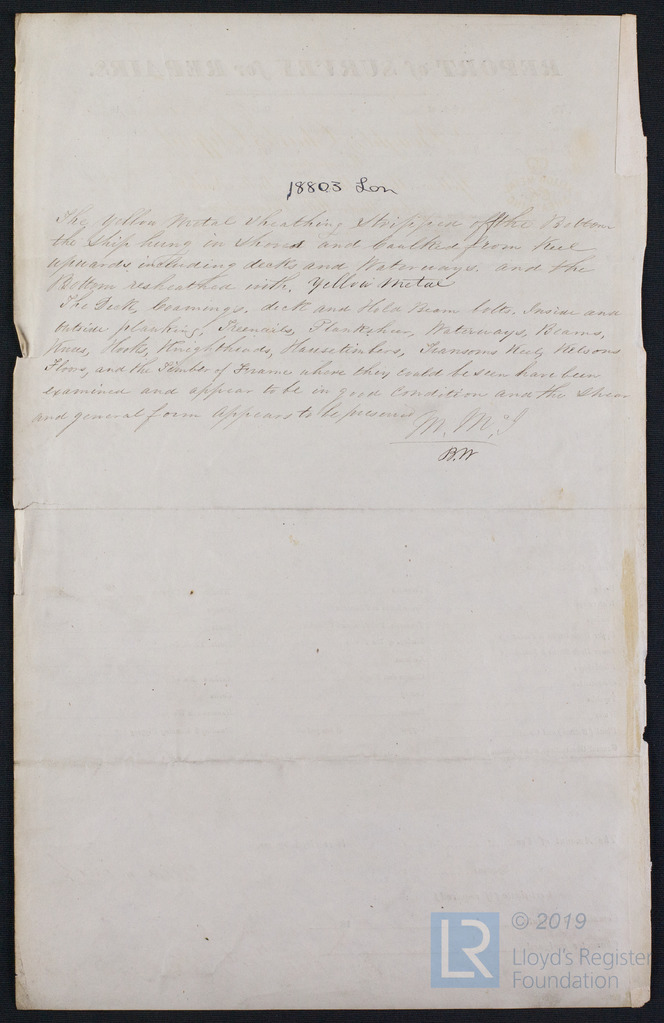 18803 Lon
The Yellow Metal Sheathing Stripped off the Bottom
the Ship hung in Shores and Caulked from Keel
upwards including decks and Waterways. and the
Bottom resheathed with. Yellow Metal
The Deck, Coamings. deck and Hold Beam bolts. Inside and
outside planking, Treenails, Planksheer, Waterways, Beams,
Knees, Hooks, Knightheads, Hawsetimbers, Transoms Keel, Kelsons
Floors, and the Timber of Frame where they could be seen have been
examined and appear to be in good Condition and the Sheer
and general form appears to be preserved
B.W
© 2019
LR
Lloyd's Register
Foundation